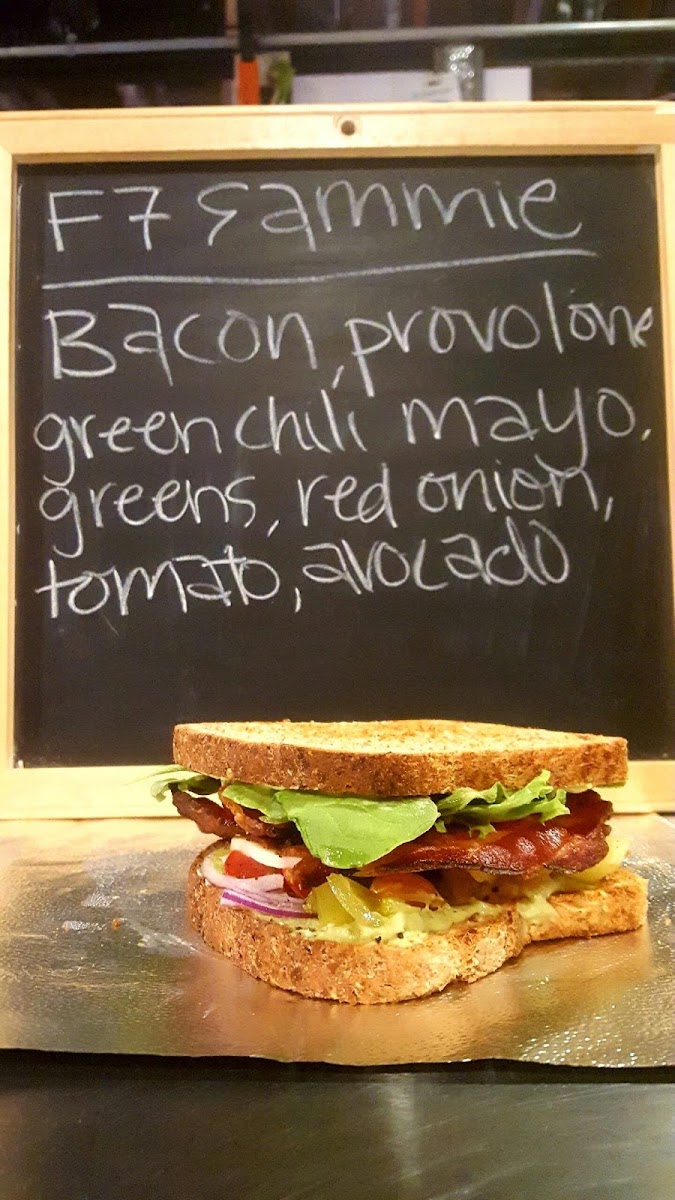 F7 Sammie
Bacon, provolone
green chili mayo.
greens, red onion,
tomato, avocado